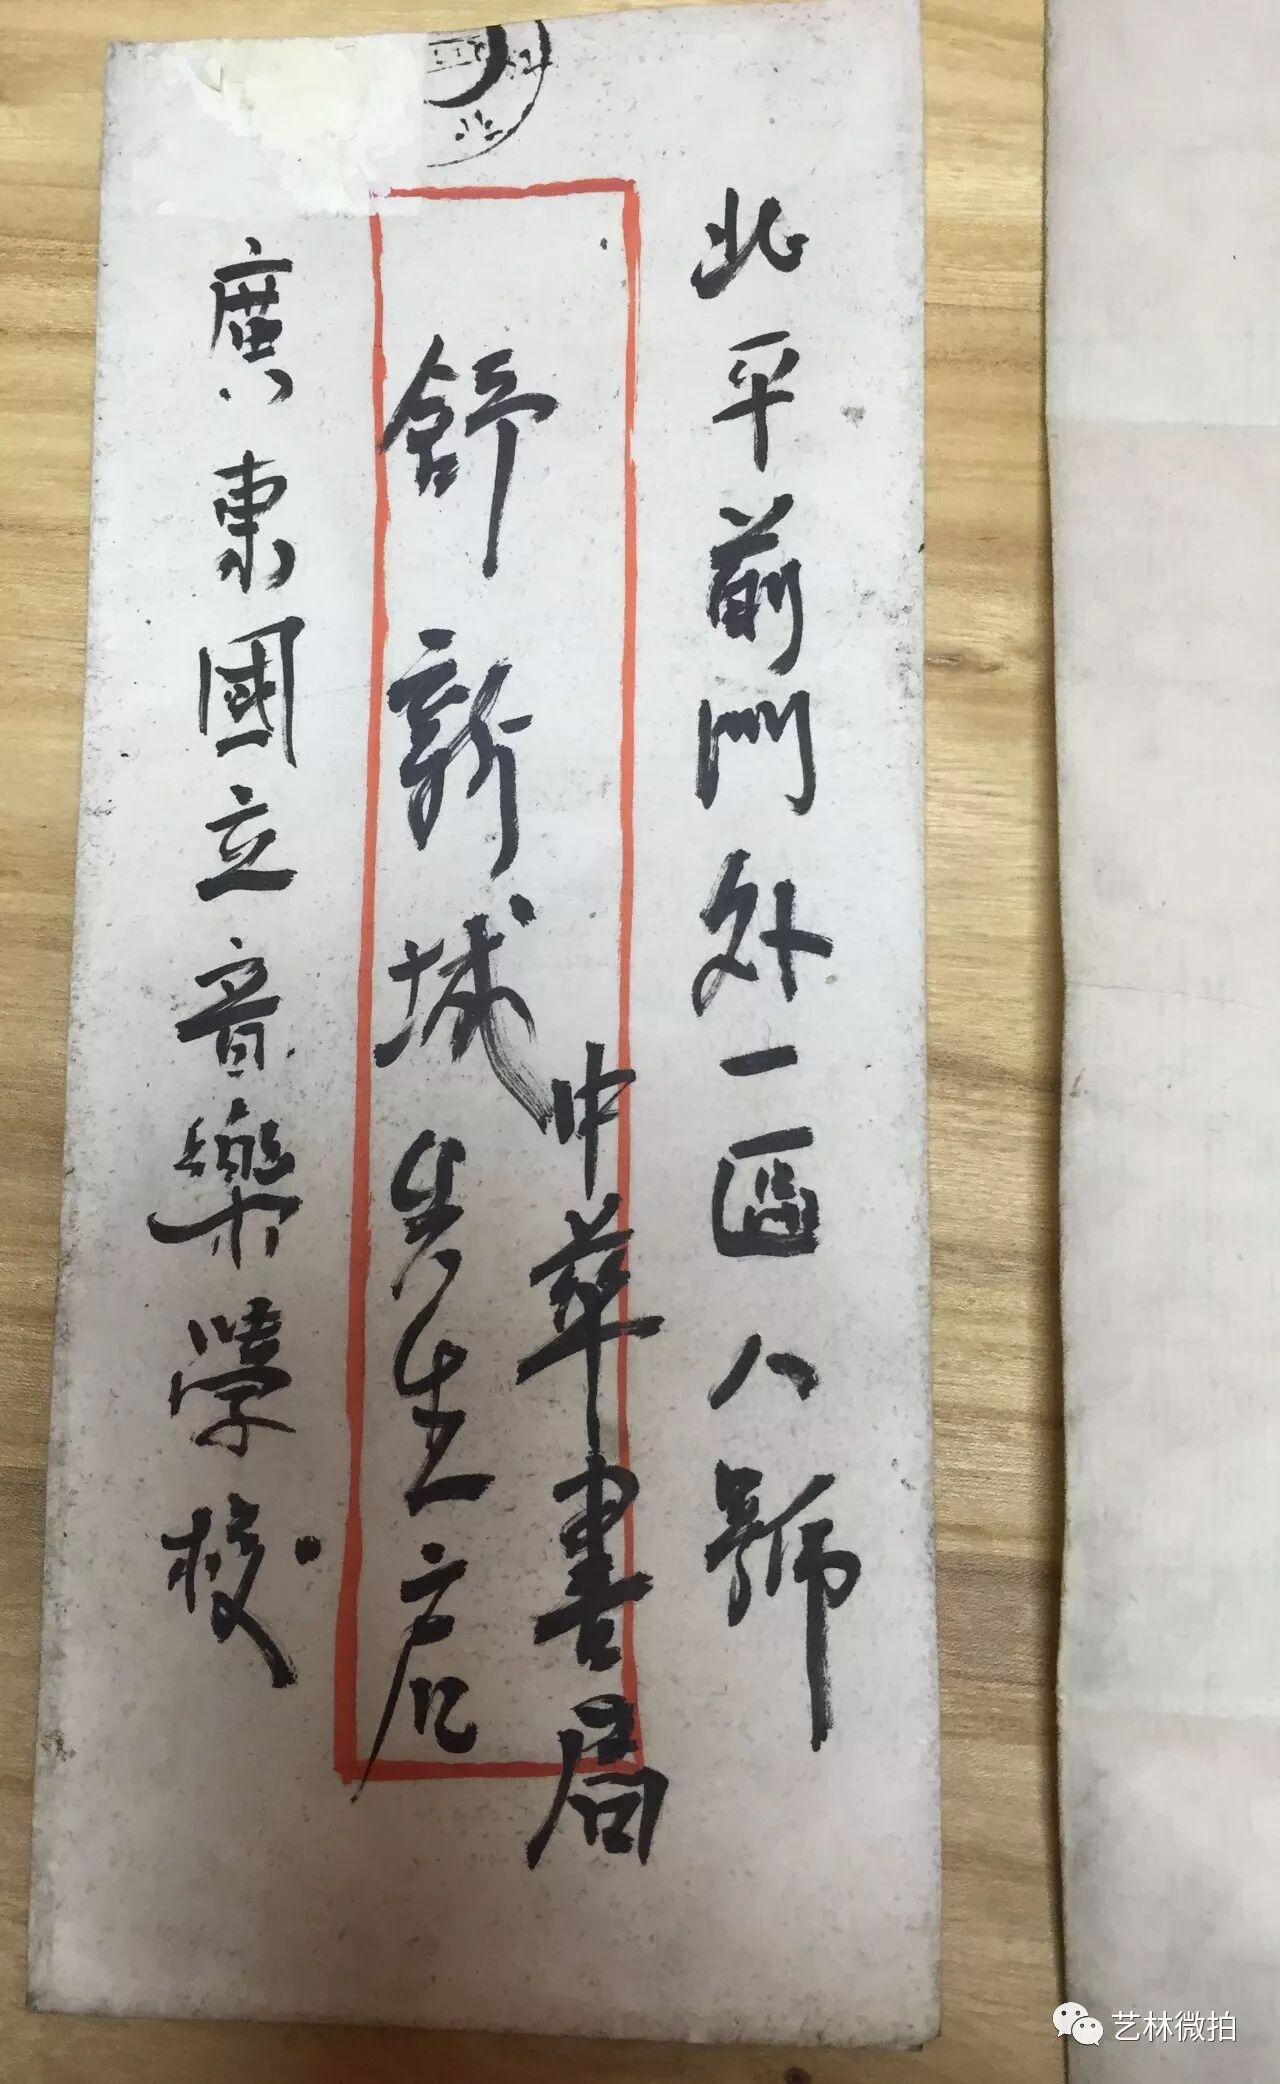 北平前門外一區八號
中華書局
舒新城先生啟
廣東國立音樂學校
艺林微拍